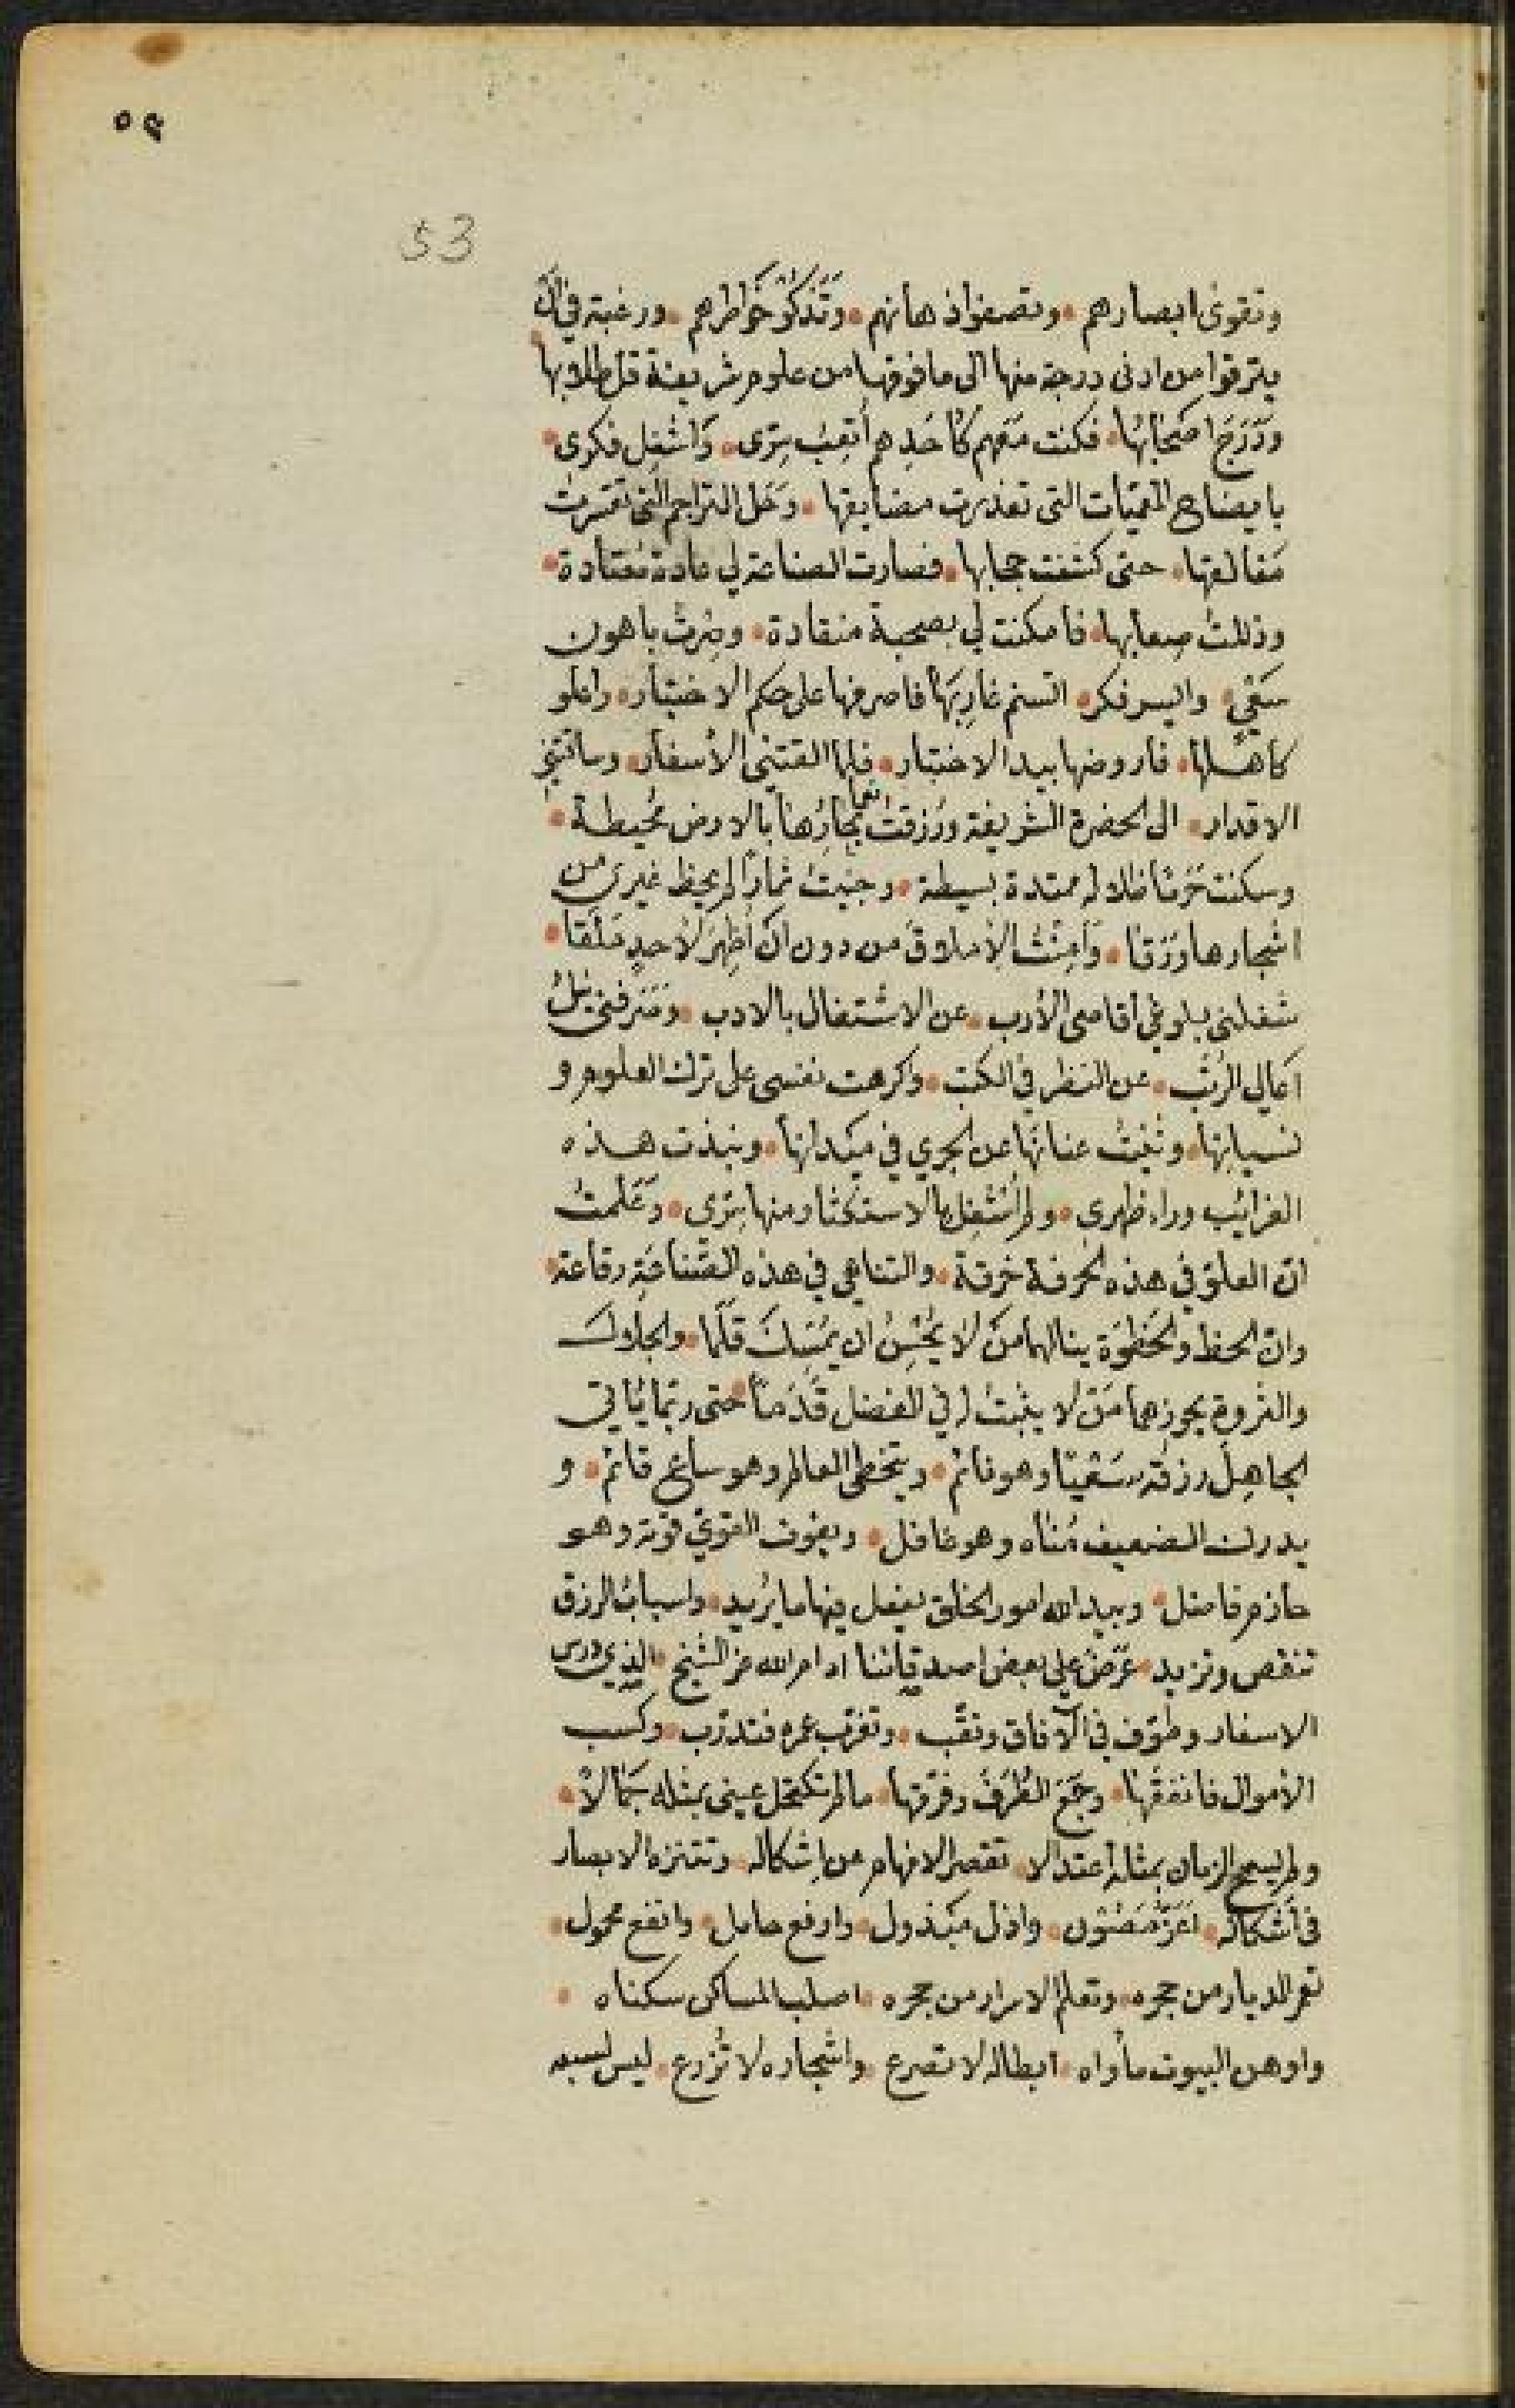 ٥٣
53
وتقوى ابصارهم • وتصفو اذهانهم • وتذكو خواطرهم • ورغبة في ان
يترقوا من ادنى درجة منها الى ما فوقها من علوم شريفة قل طلابها
ودرج اصحابها • فكنت معهم كأحدهم أتعب سري • واشغل فكري •
بايضاح المعميات التي تعذرت مضايقها • وحل التراجم التي تعسرت
مغالقها • حتى كشفت حجابها • فصارت الصناعة لي عادة معتادة •
وذللت صعابها • فامكنت لي بصحبة منقادة • وصرت باهون
سعي • وايسر فكر • اتسنم غاربها فاصرفها على حكم الاختيار • واعلو
كاهلها • فاروضها بيد الاختبار • فلما القتني الأسفار • وساقتني
الاقدار • الى الحضرة الشريفة ورزقت نعما بحارها بالارض محيطة •
وسكنت حرما ظلاله ممتدة بسيطة • وجنيت ثمارا لم يحظ غيري من
اشجارها ورقا • وأمنت الإملاق من دون ان أظهر لأحد ملقا •
شغلني بلوغي أقاصي الأرب • عن الاشتغال بالادب • وصرفني نيل
اعالي الرتب • عن النظر في الكتب • واكرهت نفسي على ترك العلوم و
نسيانها • وثنيت عنانها عن الجري في ميدانها • ونبذت هذه
الغرائب وراء ظهري • ولم أشغل بالاستكثار منها سري • وعلمت
ان العلو في هذه الحرفة خرقة • والتناهي في هذه الصناعة رقاعة •
وان الحظ والحظوة ينالهما من لا يحسن ان يمسك قلما • والجاه و
والثروة يحوزهما من لا يثبت له في الفضل قدما • حتى ربما يأتي
الجاهل رزقه سعيا وهو نائم • ويتخطى العالم وهو ساع قائم • و
يدرك الضعيف مناه وهو غافل • ويفوت القوي قوته وهو
حازم فاضل • وبيد الله امور الخلق يفعل فيها ما يريد • واسباب الرزق
تنقص وتزيد • عرض علي بعض اصدقائنا ادام الله عز الشيخ • الذي درس
الاسفار وطوف في الآفاق ونقب • وتغرب عمره فتدرب • وكسب
الأموال فانفقها • وجمع الطرف وفرقها • ما لم تكتحل عيني بمثله جمالا •
ولم يسمح الزمان بمثله اعتدالا • تقصر الافهام عن إشكاله • وتتنزه الابصار
في أشكاله • اعز مصون • واذل مبذول • وارفع حامل • وانفع محمول •
تعمر الديار من حجره • وتعلم الاسرار من حجره • اصلب المساكن سكناه •
واوهن البيوت مأواه • ابطاله لا تصرع • واشجاره لا تزرع • ليس لسبعه